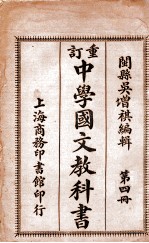 閩縣吳增祺編輯
第四冊
重訂
中學國文教科書
上海商務印書館印行